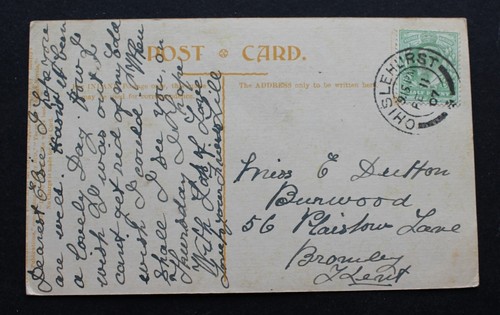 POST CARD.
The ADDRESS only to be written here.
CHISLEHURST
Dearest Elsie I hope you
are well. Hasn't it been
a lovely Day. How I
wish I was out. I
cant get rid of my Cold
wish I could. When
Shall I see you, on
Thursday I hope
With Lots of Love
from your friend Lill
Miss E Dutton
Burwood
56 Plaistow Lane
Bromley
Kent